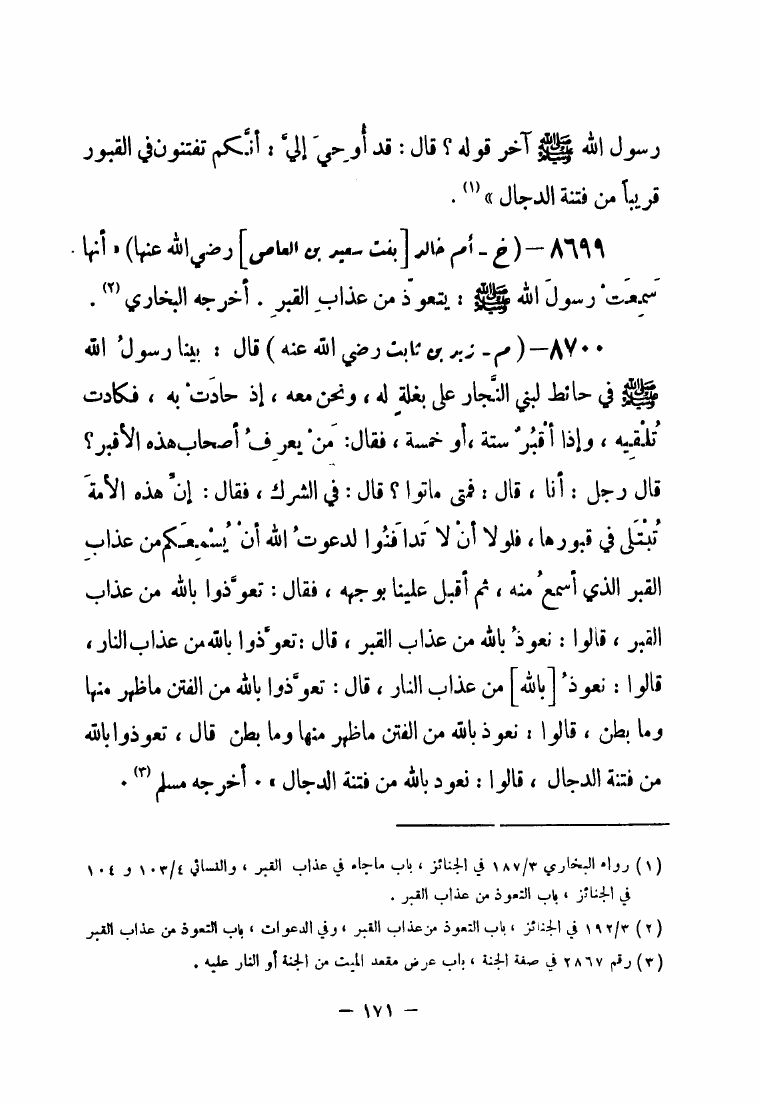 رسول الله ﷺ آخر قوله ؟ قال : قد أُوحيَ إليَّ : أنَّكم تفتنون في القبور
قريباً من فتنة الدجال » (١) .
٨٦٩٩ – ( خ – أم خالد [ بنت سعيد بن العاص ] رضي الله عنها ) « أنها
سَمِعَتْ رسولَ الله ﷺ : يتعوذ من عذابِ القبرِ . أخرجه البخاري (٢) .
٨٧٠٠ – ( م – زيد بن ثابت رضي الله عنه ) قال : بينا رسولُ الله
ﷺ في حائط لبني النَّجار على بغلةٍ له ، ونحن معه ، إذ حادَت به ، فكادت
تُلْقِيه ، وإذا أقْبُرٌ ستة ، أو خمسة ، فقال : مَنْ يعرفُ أصحاب هذه الأقبر ؟
قال رجل : أنا ، قال : فمتى ماتوا ؟ قال : في الشرك ، فقال : إنَّ هذه الأمةَ
تُبْتَلَى في قبورها ، فلولا أنْ لا تَدافَنُوا لدعوتُ الله أنْ يُسْمِعَكم من عذابِ
القبر الذي أسمعُ منه ، ثم أقبل علينا بوجهه ، فقال : تعوَّذوا بالله من عذاب
القبر ، قالوا : نعوذُ بالله من عذاب القبر ، قال : تعوَّذوا بالله من عذاب النار ،
قالوا : نعوذُ [ بالله ] من عذاب النار ، قال : تعوَّذوا بالله من الفتن ماظهر منها
وما بطن ، قالوا : نعوذ بالله من الفتن ماظهر منها وما بطن قال ، تعوذوا بالله
من فتنة الدجال ، قالوا : نعود بالله من فتنة الدجال » . أخرجه مسلم (٣) .
(١) رواه البخاري ١٨٧/٣ في الجنائز ، باب ماجاء في عذاب القبر ، والنسائي ١٠٣/٤ و ١٠٤
في الجنائز ، باب التعوذ من عذاب القبر .
(٢) ١٩٢/٣ في الجنائز ، باب التعوذ من عذاب القبر ، وفي الدعوات ، باب التعوذ من عذاب القبر
(٣) رقم ٢٨٦٧ في صفة الجنة ، باب عرض مقعد الميت من الجنة أو النار عليه .
– ١٧١ –